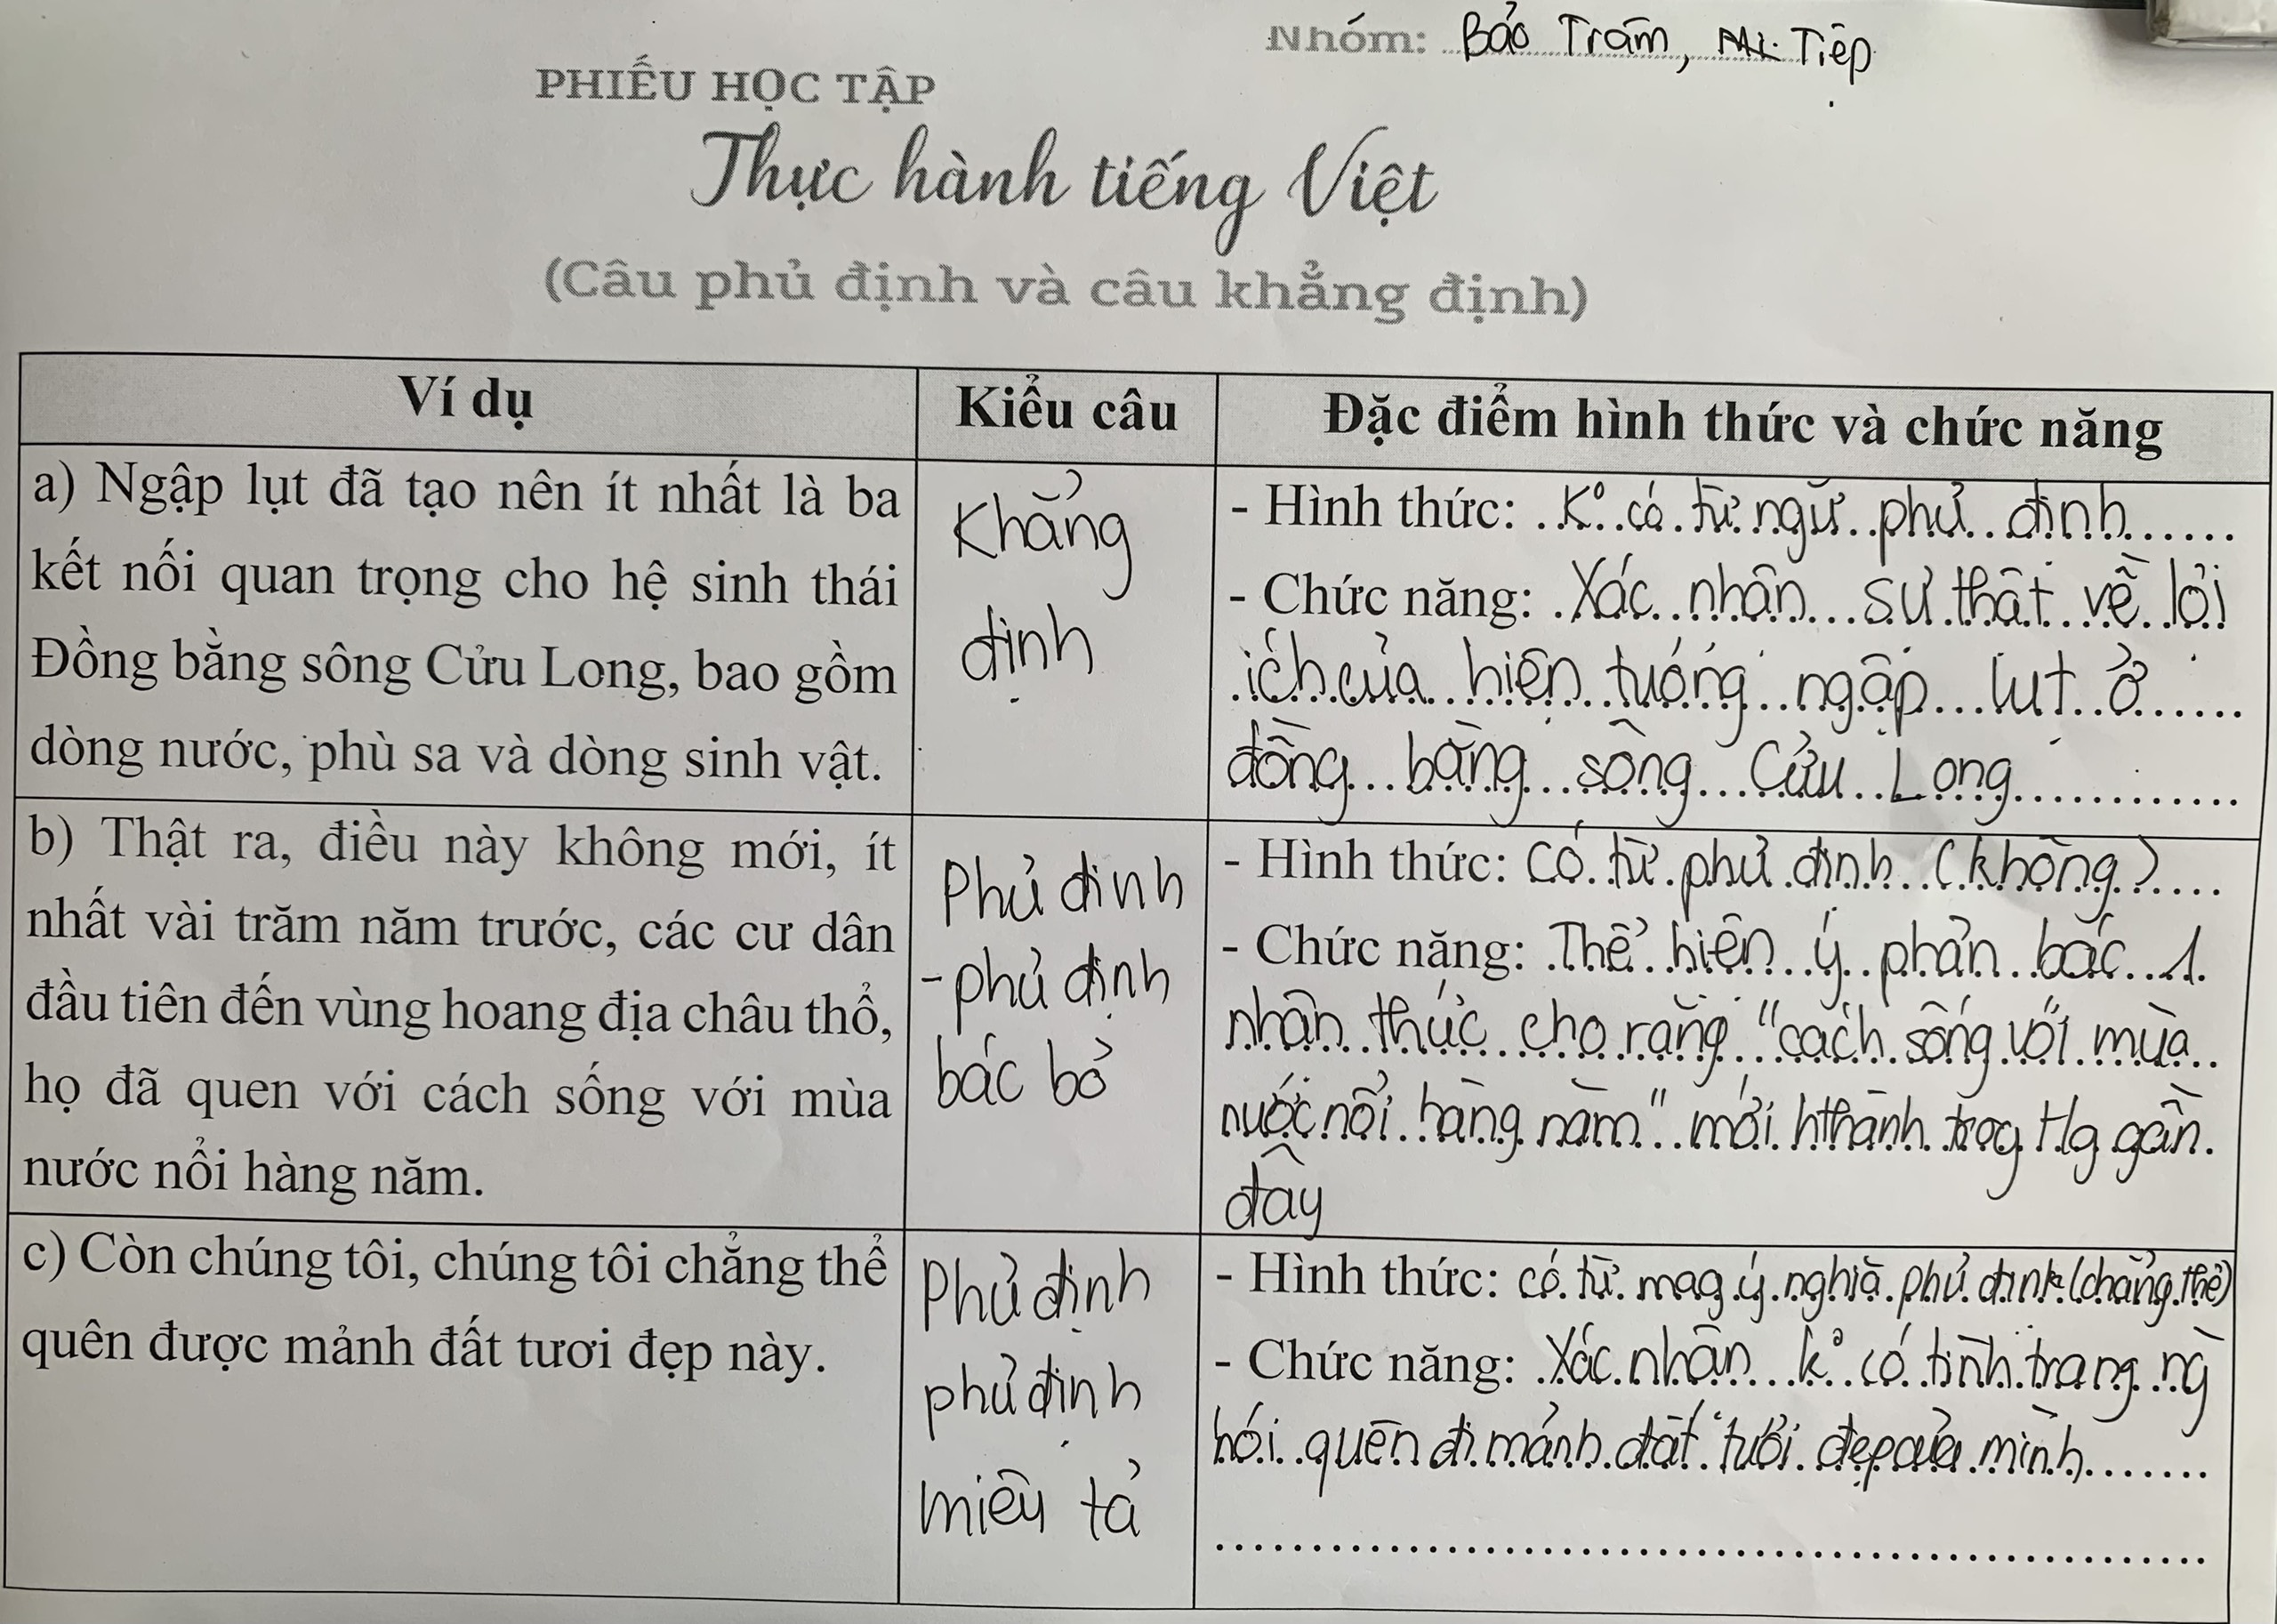 Nhóm: Bảo Trâm, Tiệp
PHIẾU HỌC TẬP
Thực hành tiếng Việt
(Câu phủ định và câu khẳng định)
Ví dụ
Kiểu câu
Đặc điểm hình thức và chức năng
a) Ngập lụt đã tạo nên ít nhất là ba
kết nối quan trọng cho hệ sinh thái
Đồng bằng sông Cửu Long, bao gồm
dòng nước, phù sa và dòng sinh vật.
Khẳng
định
- Hình thức: K° có từ ngữ phủ định
- Chức năng: Xác nhận sự thật về lợi
ích của hiện tượng ngập lụt ở
đồng bằng sông Cửu Long
b) Thật ra, điều này không mới, ít
nhất vài trăm năm trước, các cư dân
đầu tiên đến vùng hoang địa châu thổ,
họ đã quen với cách sống với mùa
nước nổi hàng năm.
Phủ định
- phủ định
bác bỏ
- Hình thức: Có từ phủ định (không)
- Chức năng: Thể hiện ý phản bác 1
nhận thức cho rằng "cách sống với mùa
nước nổi hàng năm" mới hthành trog tg gần
đây
c) Còn chúng tôi, chúng tôi chẳng thể
quên được mảnh đất tươi đẹp này.
Phủ định
phủ định
miêu tả
- Hình thức: có từ mag ý nghĩa phủ định (chẳng thể)
- Chức năng: Xác nhận k° có tình trạng ng
hói quên đi mảnh đất tươi đẹp của mình